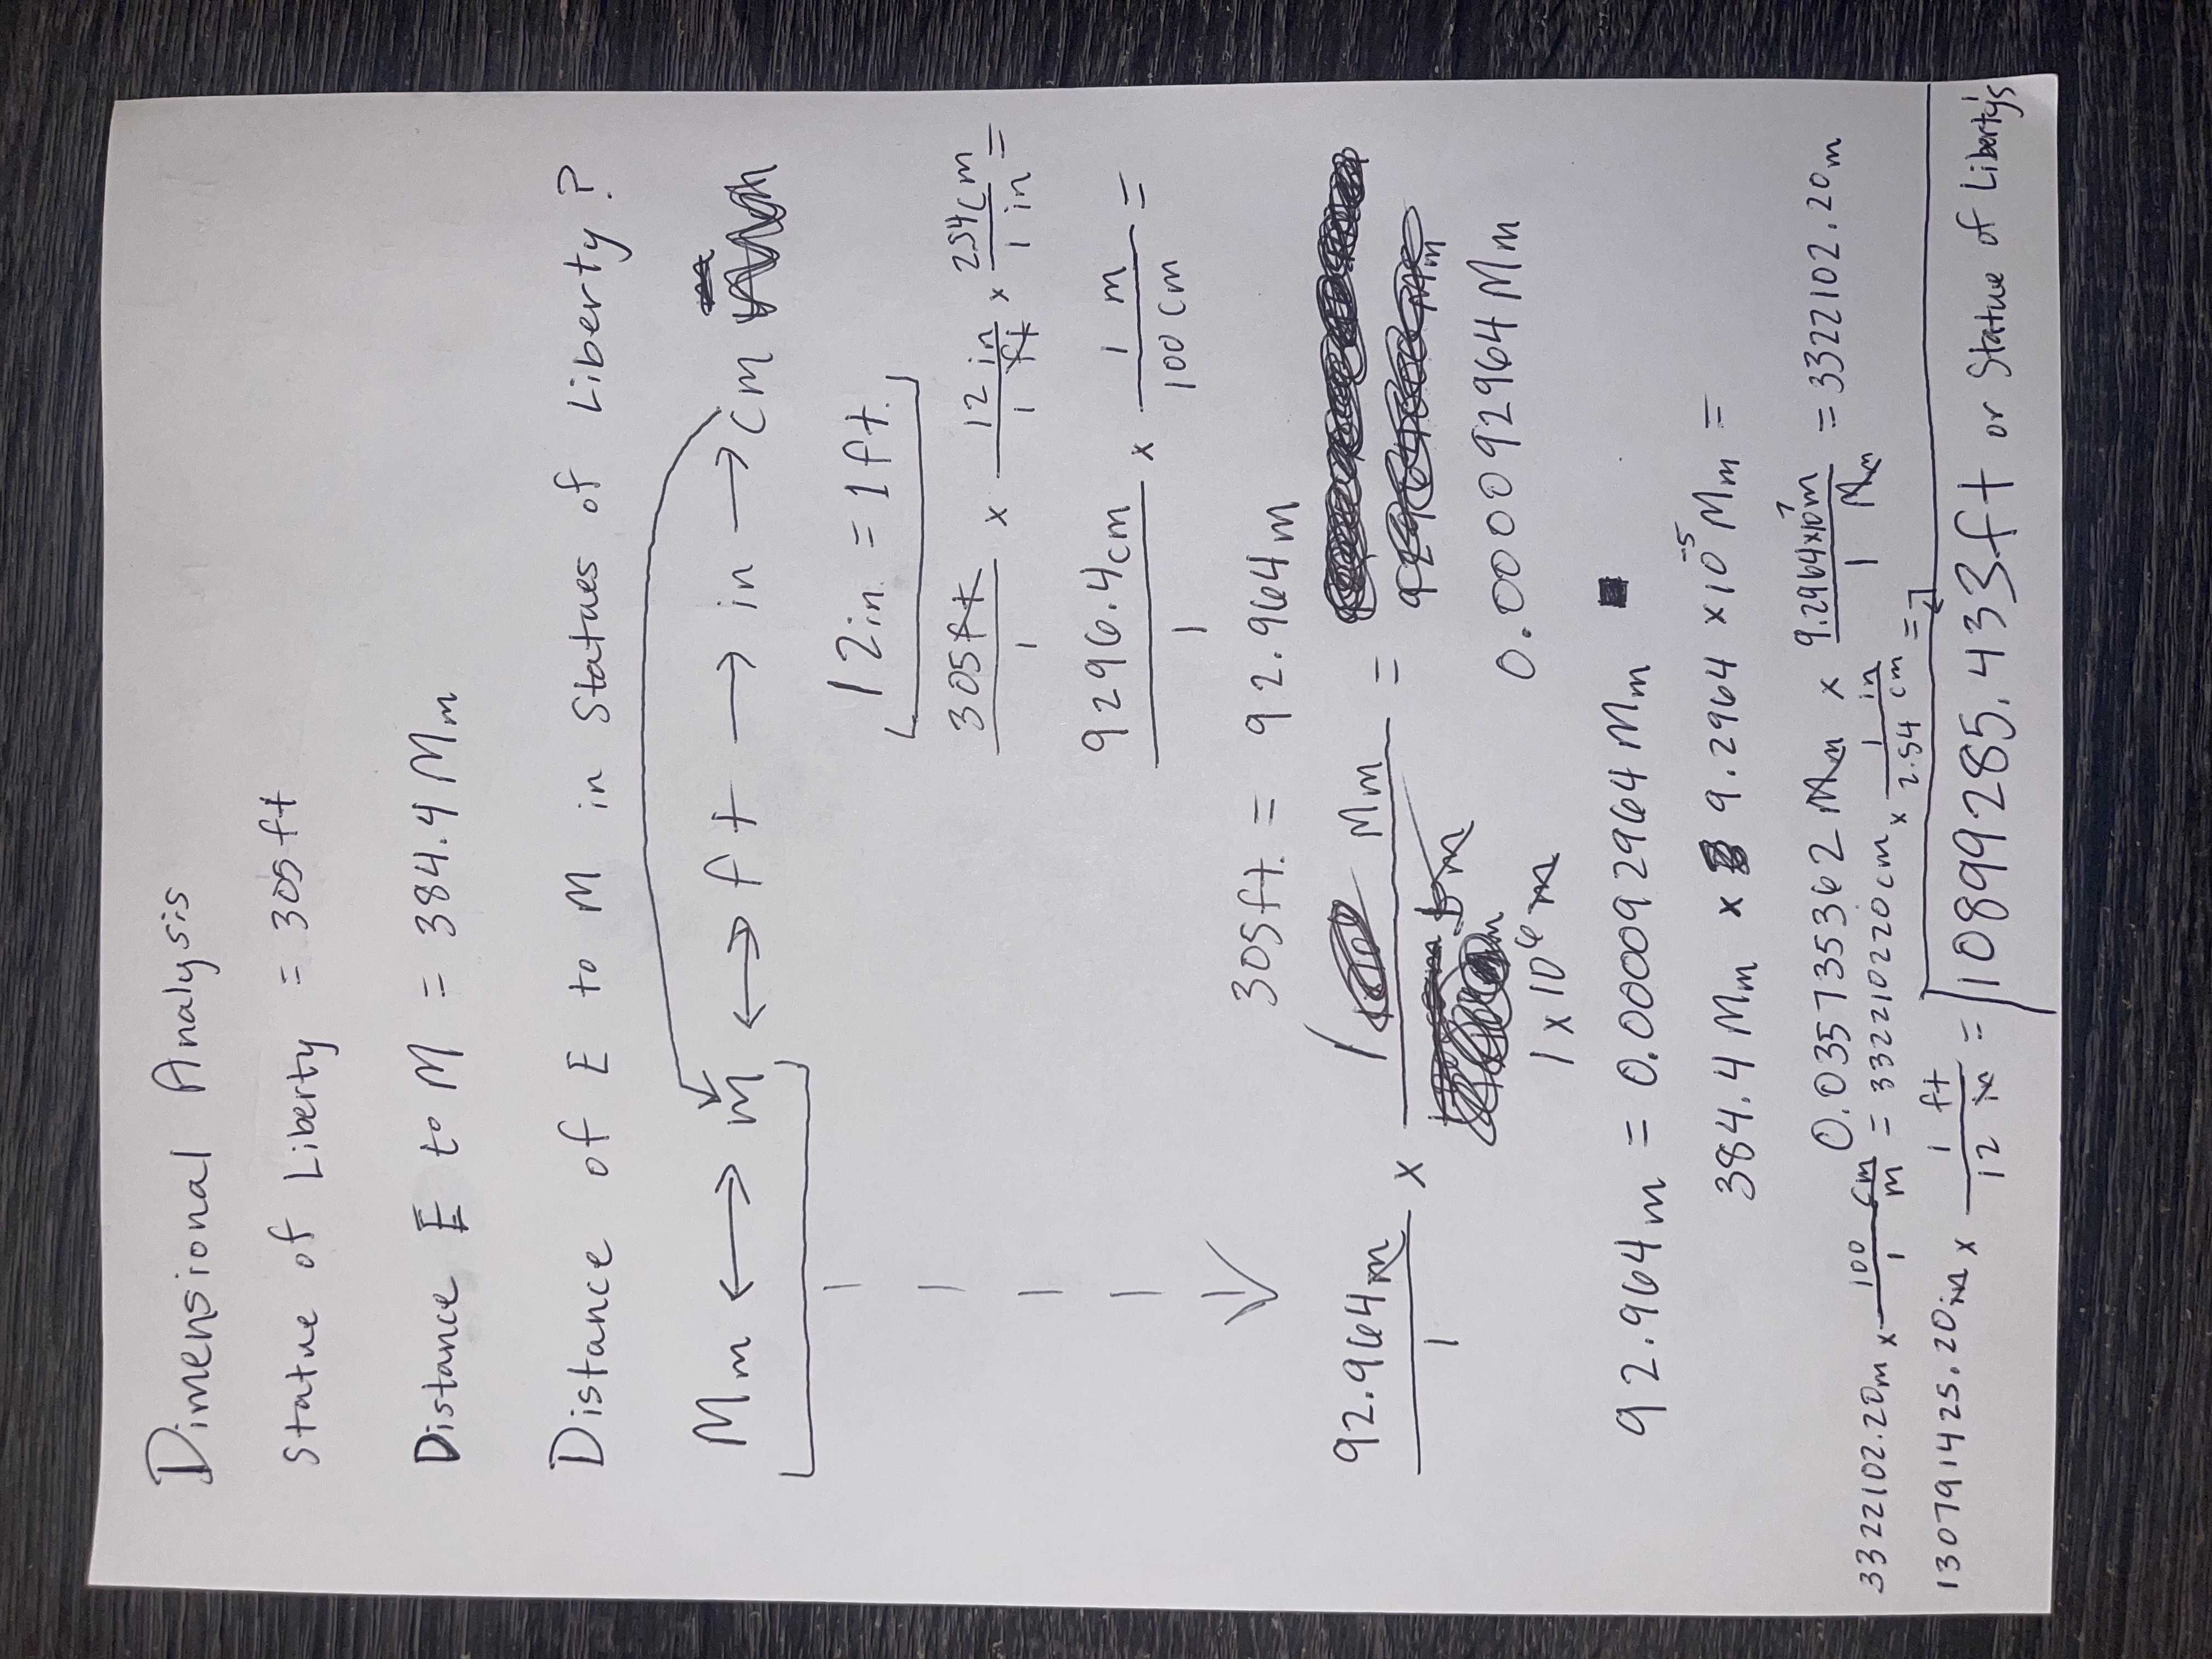 Dimensional Analysis
Statue of Liberty = 305ft
Distance E to M = 384.4 Mm
Distance of E to M in Statues of Liberty?
Mm ↔ m ↔ ft → in → cm
12in. = 1ft.
305ft/1 x 12 in/1 ft x 254cm/1 in =
9296.4cm/1 x 1 m/100 cm =
305ft. = 92.964m
92.964m/1 x 1 Mm/1x10⁶ m = 0.000092964 Mm
92.964m = 0.000092964 Mm
384.4 Mm x 9.2964 x10⁻⁵ Mm =
0.035735362 Mm x 9.2964x10⁷m/1 Mm = 3322102.20m
3322102.20m x 100 cm/1 m = 332210220cm x 1 in/2.54 cm =
130791425.20in x 1 ft/12 in = 10899285.433ft or Statue of Liberty's